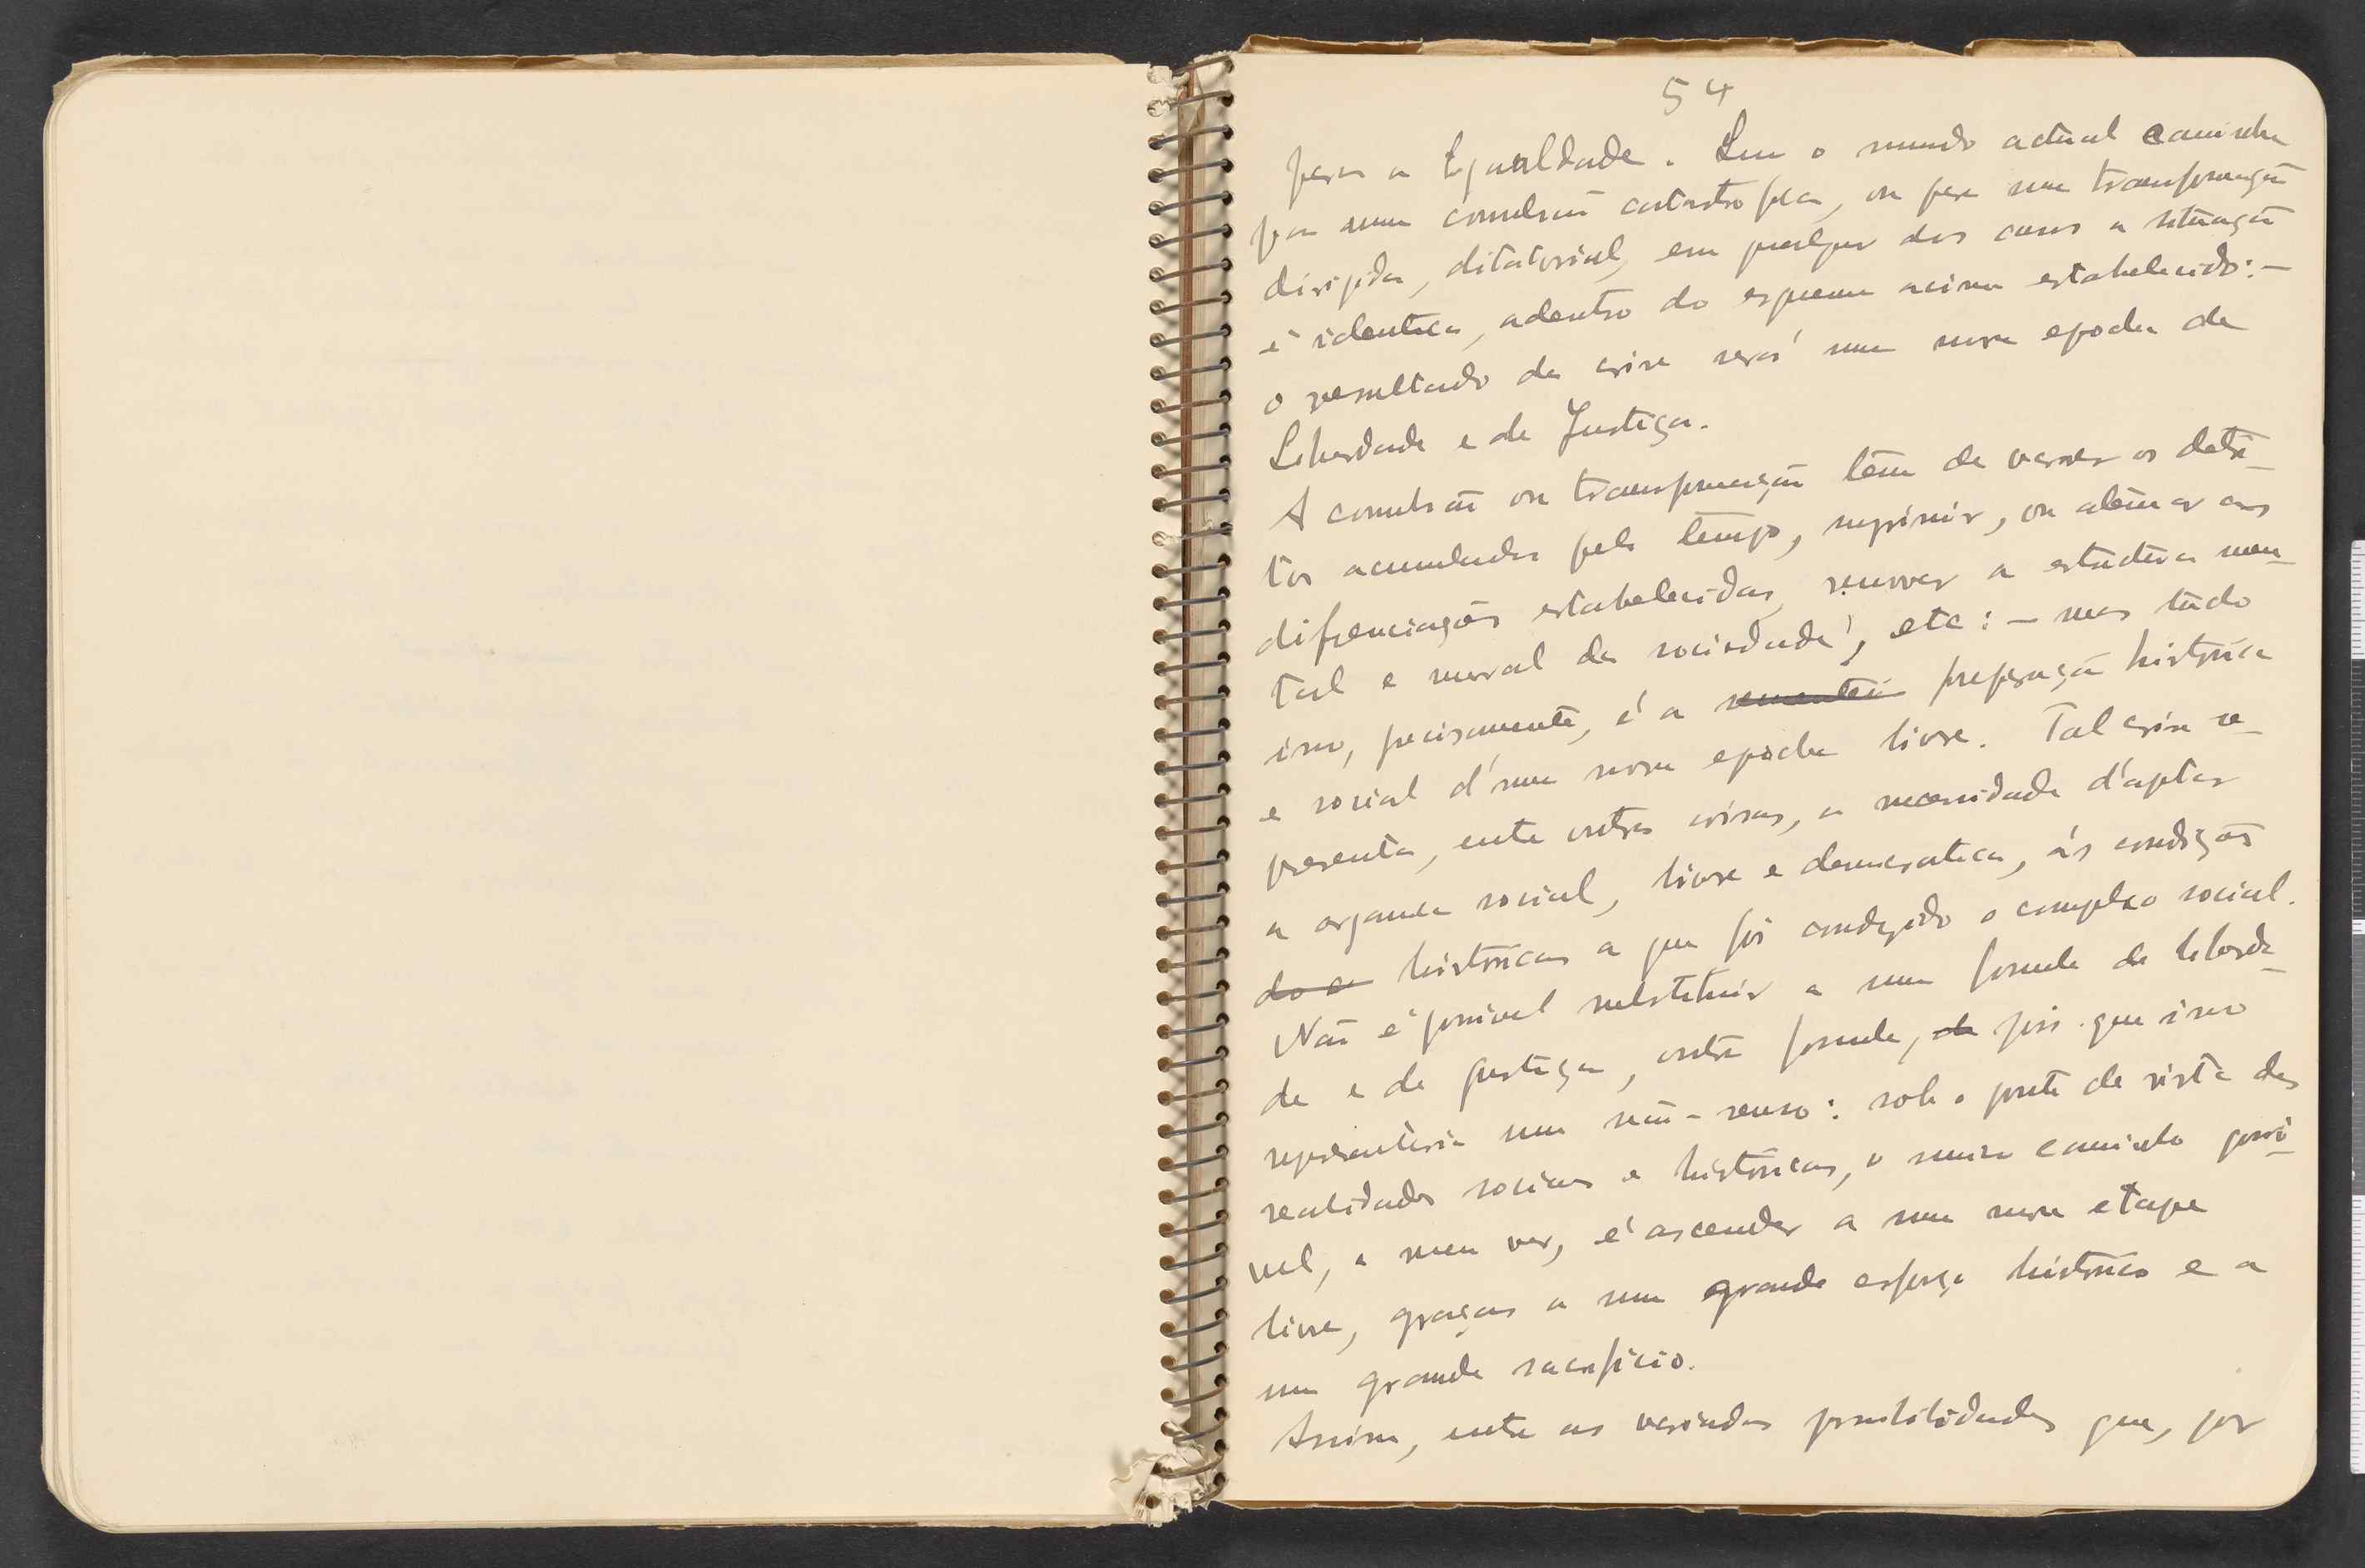 54
para a Egualdade. Que o mundo actual caminha
para uma convulsão catastrofica, ou para uma transformação
dirigida, ditatorial, em qualquer dos casos a situação
é identica, adentro do esquema acima estabelecido: –
o resultado da crise será uma nova epocha de
Liberdade e de Justiça.
A convulsão ou transformação têm de varrer os detri-
tos acumulados pelo tempo, suprimir, ou atenuar as
difrenciações estabelecidas, renovar a estructura men-
tal e moral da sociedade, etc: – mas tudo
isso, precisamente, é a preparação histórica
e social d'uma nova epocha livre. Tal crise re-
presenta, entre outras coisas, a necessidade d'aptar
a organica social, livre e democratica, ás condições
do a históricas a que foi conduzido o complexo social.
Não é possivel substituir a uma formula de liberda-
de e de justiça, outra formula, de pois que isso
representaria um não-senso: sob o ponto de vista das
realidades sociaes e históricas, o unico caminho possi-
vel, a meu ver, é ascender a uma nova etape
livre, graças a um grande esforço histórico e a
um grande sacrificio.
Assim, entre as variadas possibilidades que, por